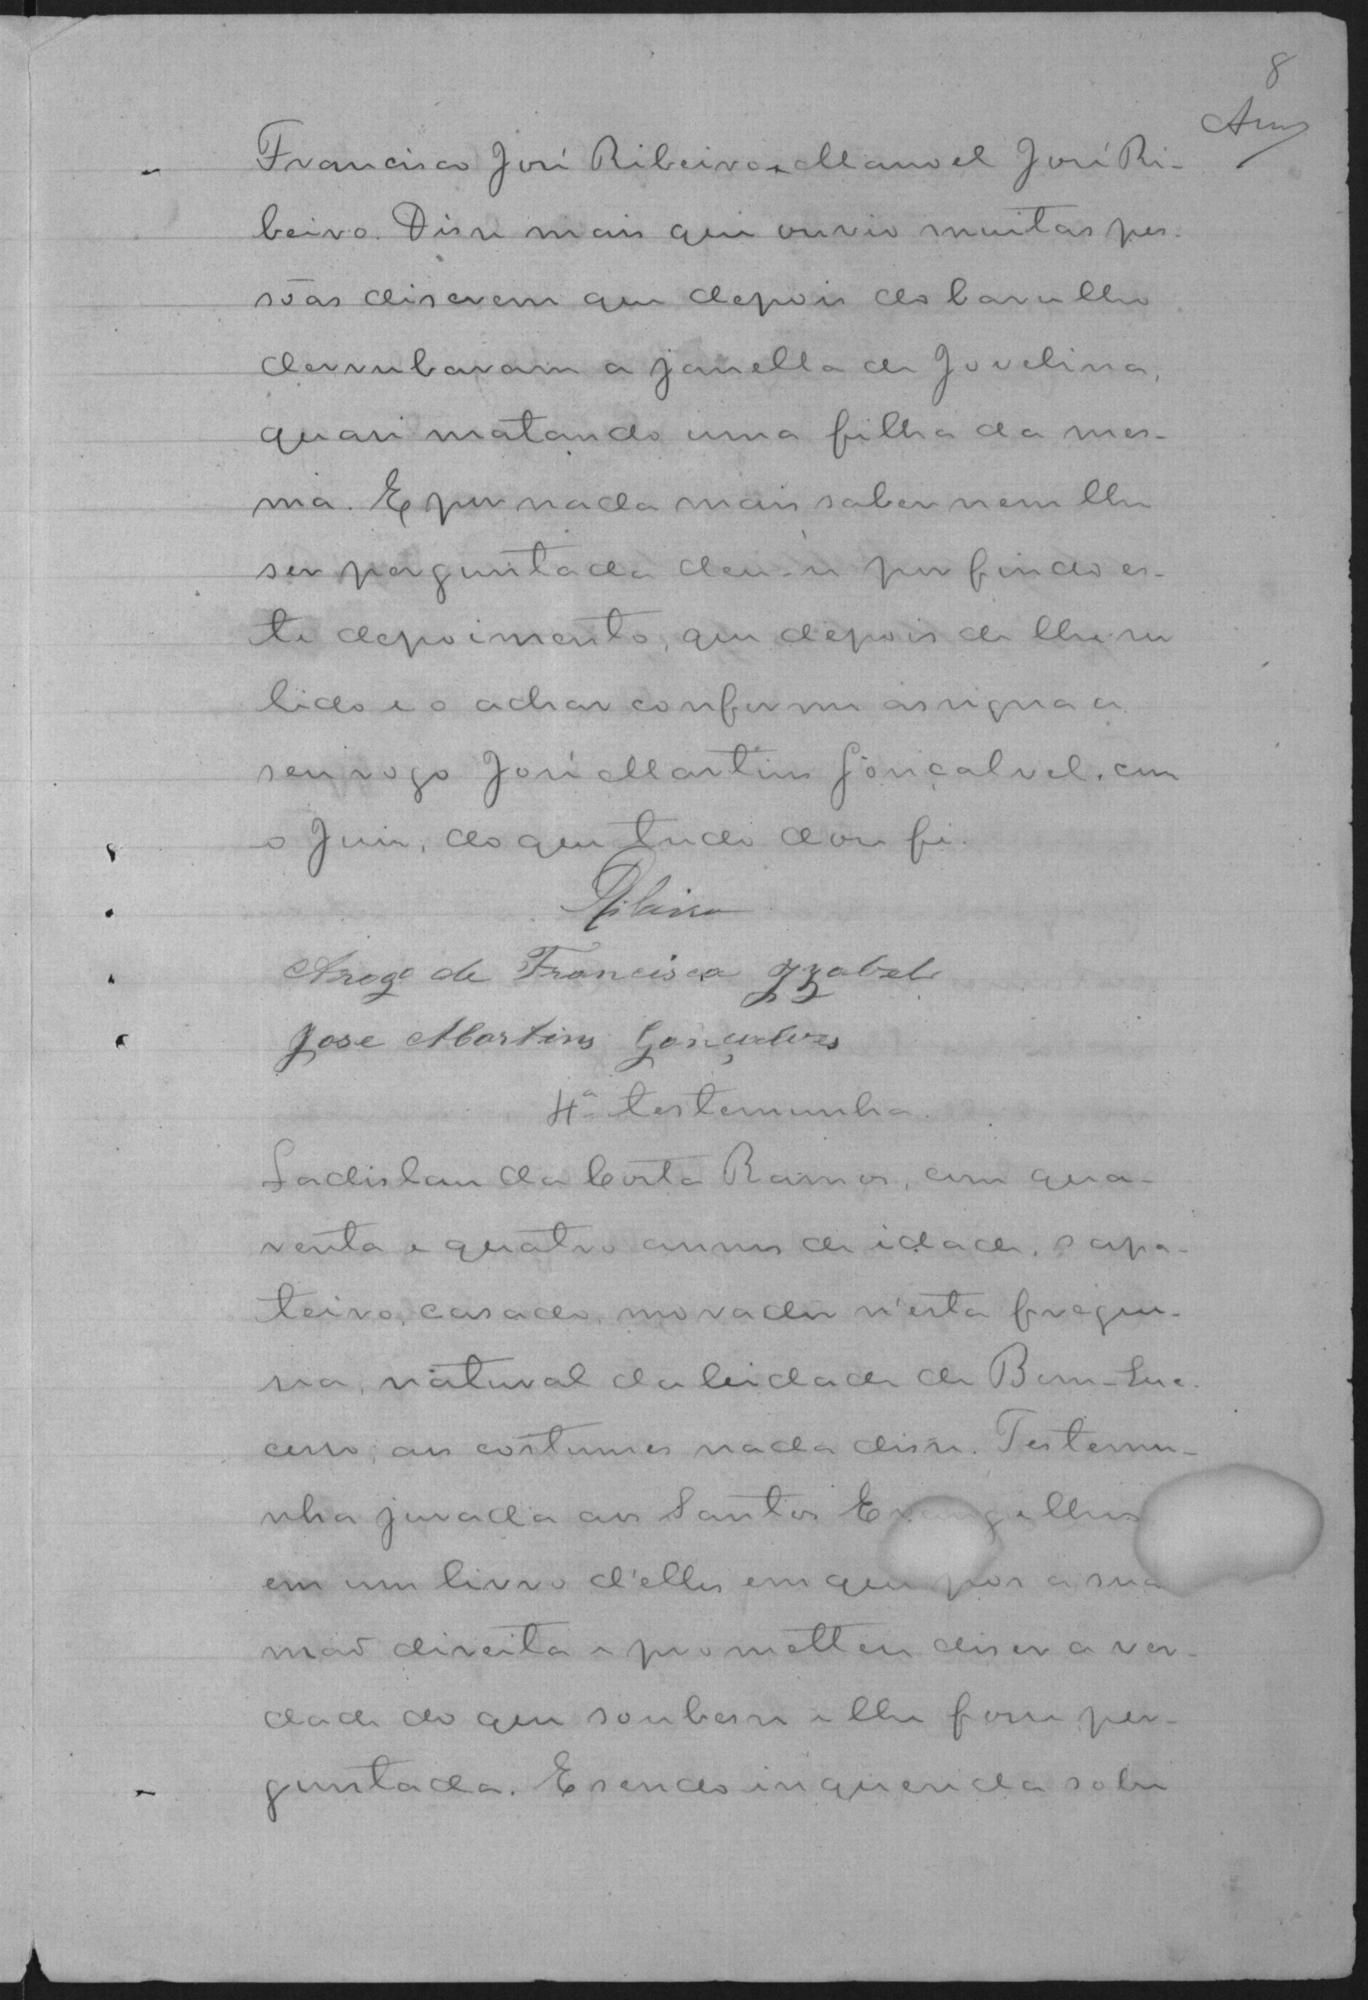 8
Francisco José Ribeiro e Manoel José Ri-
beiro. Disse mais que ouvio muitas pes-
sôas diserem que depois do barulho
derrubaram a janella de Jovelina,
quasi matando uma filha da mes-
ma. E por nada mais saber nem lhe
ser perguntada deu-se por findo es-
te depoimento, que depois de lhe ser
lido e o achar conforme assigna a
seu rogo José Martins Gonçalves, com
o Juis, do que tudo dou fé.
Ribeiro
Arogo de Francisca Izabel
Jose Martins Gonçalves
4ª testemunha.
Ladislau da Costa Ramos, com qua-
renta e quatro annos de idade, sapa-
teiro, casado, morador n'esta fregue-
sia, natural da Cidade de Bom-Suc-
cesso, aos costumes nada disse. Testemu-
nha jurada aos Santos Evangelhos
em um livro d'elles em que pos a sua
maõ direita e prometteu diser a ver-
dade do que soubesse e lhe fosse per-
guntada. E sendo inquerida sobre